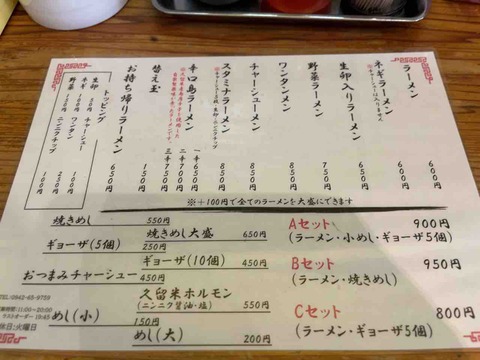 ラーメン 600円
ネギラーメン 600円
※チャーシューは入りません
生卵入りラーメン 650円
野菜ラーメン 750円
ワンタンメン 750円
チャーシューメン 850円
スタミナラーメン 850円
辛口島ラーメン
替え玉 150円
お持ち帰りラーメン 650円
トッピング
生卵
チャーシュー
ネギ
ワンタン
野菜
ニンニクチップ 100円
※+100円で全てのラーメンを大盛にできます
焼きめし 550円
焼きめし大盛 650円
ギョーザ(5個) 250円
ギョーザ(10個) 450円
おつまみチャーシュー 450円
久留米ホルモン
(ニンニク醤油・塩) 550円
めし(小) 150円
めし(大) 200円
Aセット 900円
(ラーメン・小めし・ギョーザ5個)
Bセット 950円
(ラーメン・焼きめし)
Cセット 800円
(ラーメン・ギョーザ5個)
TEL:0942-65-9759
業時間:11:00~20:00
ラストオーダー 19:45
休日:火曜日